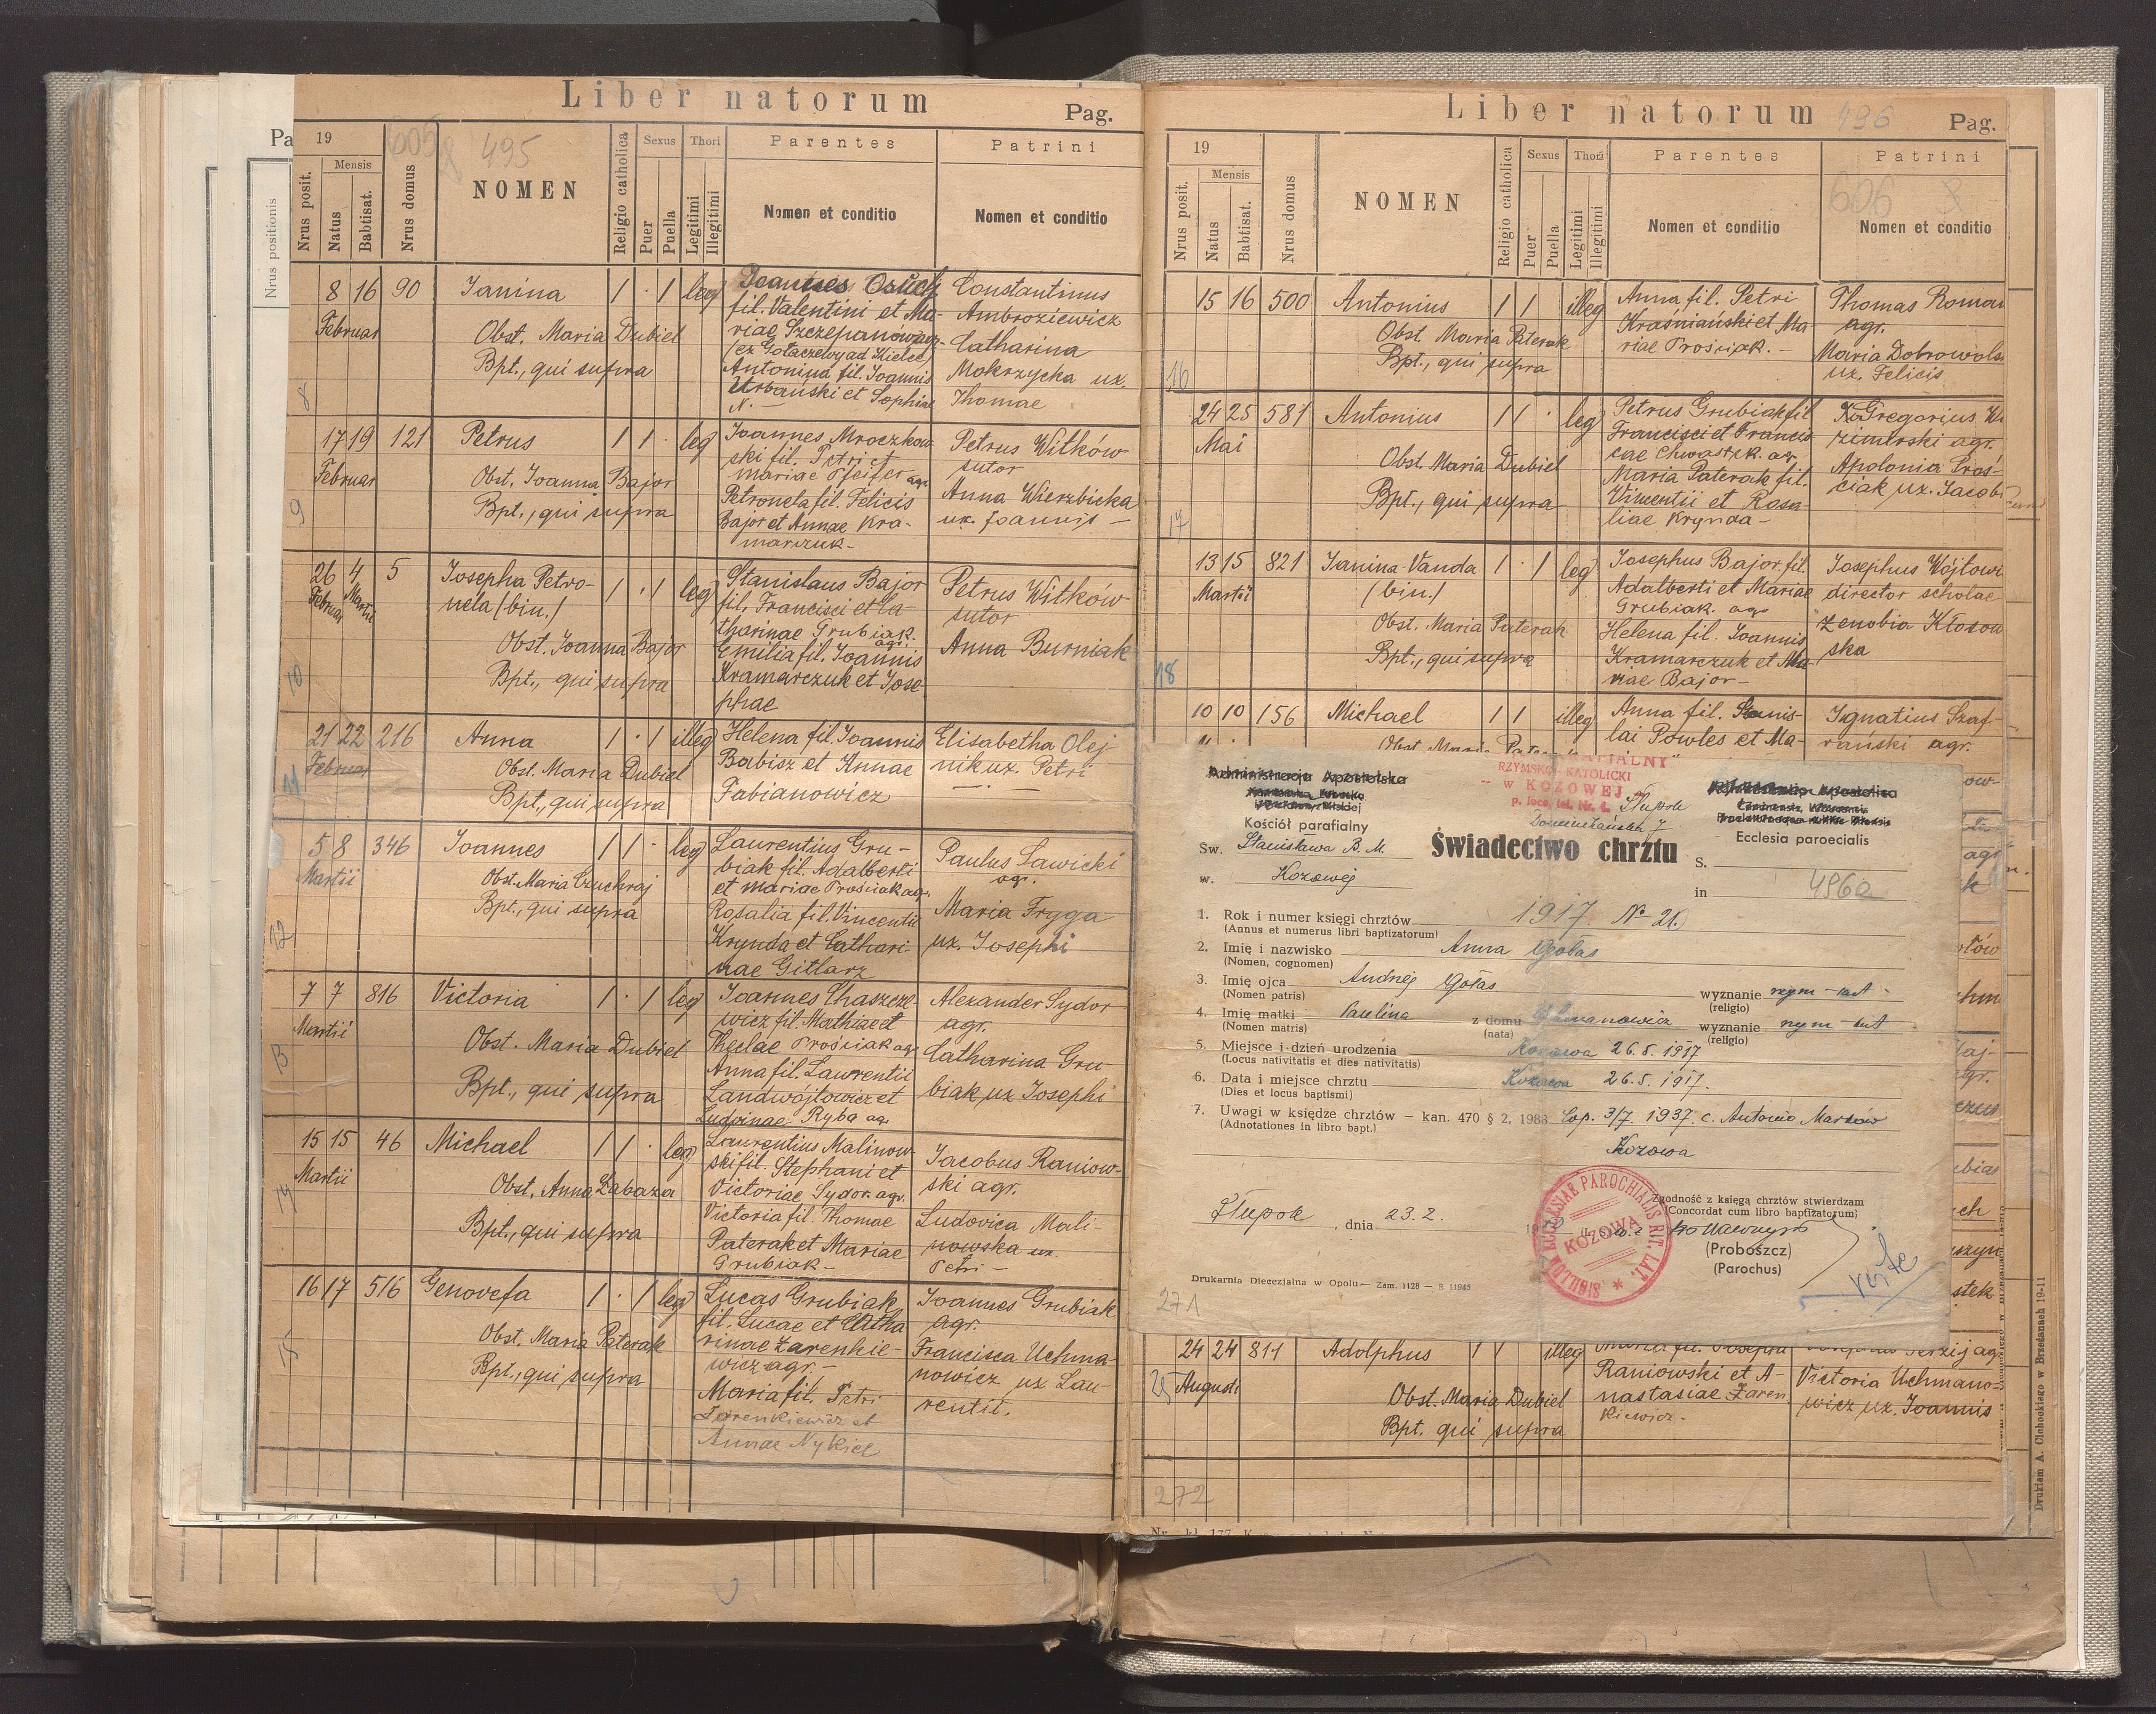 Liber natorum
Pag.
19
605
495
Nrus posit.
Mensis
Natus
Babtisat.
Nrus domus
NOMEN
Religio catholica
Sexus
Puer
Puella
Thori
Legitimi
Illegitimi
Parentes
Nomen et conditio
Patrini
Nomen et conditio
Pa
Nrus positionis
8 16 90 Janina 1 · 1 leg
Februar
Obst. Maria Dubiel
Bpt., qui supra
Joannes
fil. Valentini et Ma-
riae Szczepanów
Antonina fil. Joannis
Urbański et Sophiae
N. —
Constantinus
Ambroziewicz
Catharina
Mokrzycka ux.
Thomae
8
17 19 121 Petrus 1 1 · leg
Februar
Obst. Joanna Bajor
Bpt., qui supra
Joannes Mroczkow
ski fil. Petri et
Mariae Pfeifer agr.
Petronela fil. Felicis
Bajor et Annae Kra-
marczuk -
Petrus Witków
sutor
Anna Wierzbicka
ux. Joannis —
9
26 4 5 Josepha Petro-
nela (bin.) 1 · 1 leg
Februar Martii
Obst. Joanna Bajor
Bpt., qui supra
Stanislaus Bajor
fil. Francisci et Ca-
tharinae Grubiak.
agr.
Emilia fil. Joannis
Kramarczuk et Jose-
phae
Petrus Witków
sutor
Anna Burniak
10
21 22 216 Anna 1 · 1 illeg
Februar
Obst. Maria Dubiel
Bpt., qui supra
Helena fil. Joannis
Babisz et Annae
Fabianowicz
Elisabetha Olej-
nik ux. Petri
11
5 8 346 Joannes 1 1 · leg
Martii
Obst. Maria Czuchraj
Bpt., qui supra
Laurentius Gru-
biak fil. Adalberti
et Mariae Prościak agr.
Rosalia fil. Vincentii
Krynda et Cathari-
nae Gitlarz
Paulus Sawicki
agr.
Maria Fryga
ux. Josephi
12
7 7 816 Victoria 1 · 1 leg
Martii
Obst. Maria Dubiel
Bpt., qui supra
Joannes Chaszcze-
wicz fil. Mathiae et
Theclae Prościak agr.
Anna fil. Laurentii
Landwójtowicz et
Ludvinae Ryba ag.
Alexander Sydor
agr.
Catharina Gru-
biak ux Josephi
13
15 15 46 Michael 1 1 · leg
Martii
Obst. Anna Łabaza
Bpt., qui supra
Laurentius Malinow-
ski fil. Stephani et
Victoriae Sydor. agr.
Victoria fil. Thomae
Paterak et Mariae
Grubiak -
Jacobus Raniow-
ski agr.
Ludovica Mali-
nowska ux.
Petri —
14
16 17 516 Genovefa 1 · 1 leg
Obst. Maria Paterak
Bpt., qui supra
Lucas Grubiak
fil. Lucae et Catha
rinae Zarenkie-
wicz agr. -
Maria fil. Petri
Zarenkiewicz et
Annae Nykiel
Joannes Grubiak
agr.
Francisca Uchma-
nowicz ux Lau-
rentii.
15
Liber natorum
496
Pag.
19
Nrus posit.
Mensis
Natus
Babtisat.
Nrus domus
NOMEN
Religio catholica
Sexus
Puer
Puella
Thori
Legitimi
Illegitimi
Parentes
Nomen et conditio
Patrini
606
Nomen et conditio
15 16 500 Antonius 1 1 illeg
Obst. Maria Paterak
Bpt., qui supra
Anna fil. Petri
Kraśniański et Ma-
riae Prościak. -
Thomas Roman
agr.
Maria Dobrowols
ux. Felicis
16
24 25 581 Antonius 1 1 · leg
Mai
Obst. Maria Dubiel
Bpt., qui supra
Petrus Grubiak fil.
Francisci et Francis
cae Chwastek. ag.
Maria Paterak fil.
Vincentii et Rosa-
liae Krynda -
Gregorius
agr.
Apolonia Proś-
ciak ux. Jacobi
17
13 15 821 Janina-Vanda 1 · 1 leg
(bin.)
Martii
Obst. Maria Paterak
Bpt., qui supra
Josephus Bajor fil.
Adalberti et Mariae
Grubiak. agr
Helena fil. Joannis
Kramarczuk et Ma-
riae Bajor -
Josephus Wójtowi
director scholae
Zenobia Kłosow
ska
18
10 10 156 Michael 1 1 illeg
Anna fil. Stanis-
lai Powles et Ma-
Ignatius Szaf-
rański agr.
Administracja Apostolska
Kościół parafialny
Św. Stanisława B. M.
w. Kozowej
RZYMSKO-KATOLICKI
w KOZOWEJ
p. loco, tel. Nr. 4.
Słupsk
Dominikańska 7
Świadectwo chrztu
Ecclesia paroecialis
S.
in
496a
1. Rok i numer księgi chrztów 1917 No 21.
(Annus et numerus libri baptizatorum)
2. Imię i nazwisko Anna Gołas
(Nomen, cognomen)
3. Imię ojca Andrzej Gołas wyznanie rzym-kat
(Nomen patris) (religio)
4. Imię matki Paulina z domu Uchmanowicz wyznanie rzym-kat
(Nomen matris) (nata) (religio)
5. Miejsce i dzień urodzenia Kozowa 26.5.1917
(Locus nativitatis et dies nativitatis)
6. Data i miejsce chrztu Kozowa 26.5.1917.
(Dies et locus baptismi)
7. Uwagi w księdze chrztów — kan. 470 § 2, 1988 Cop. 3/7. 1937. c. Antonio Marków
(Adnotationes in libro bapt.)
Kozowa
SIGILLUM ECCLESIAE PAROCHIALIS RIT. LAT.
KOZOWA
Słupsk, dnia 23.2.
Zgodność z księgą chrztów stwierdzam
(Concordat cum libro baptizatorum)
(Proboszcz)
(Parochus)
verte
Drukarnia Diecezjalna w Opolu — Zam. 1128 — R 11945
271
24 24 811 Adolphus 1 1 illeg
Augusti
Obst. Maria Dubiel
Bpt. qui supra
Raniowski et A-
nastasiae Zaren
kiewicz -
Victoria Uchmano-
wicz ux. Joannis
25
272
Drukiem A. Cichockiego w Brzeżanach 19-11